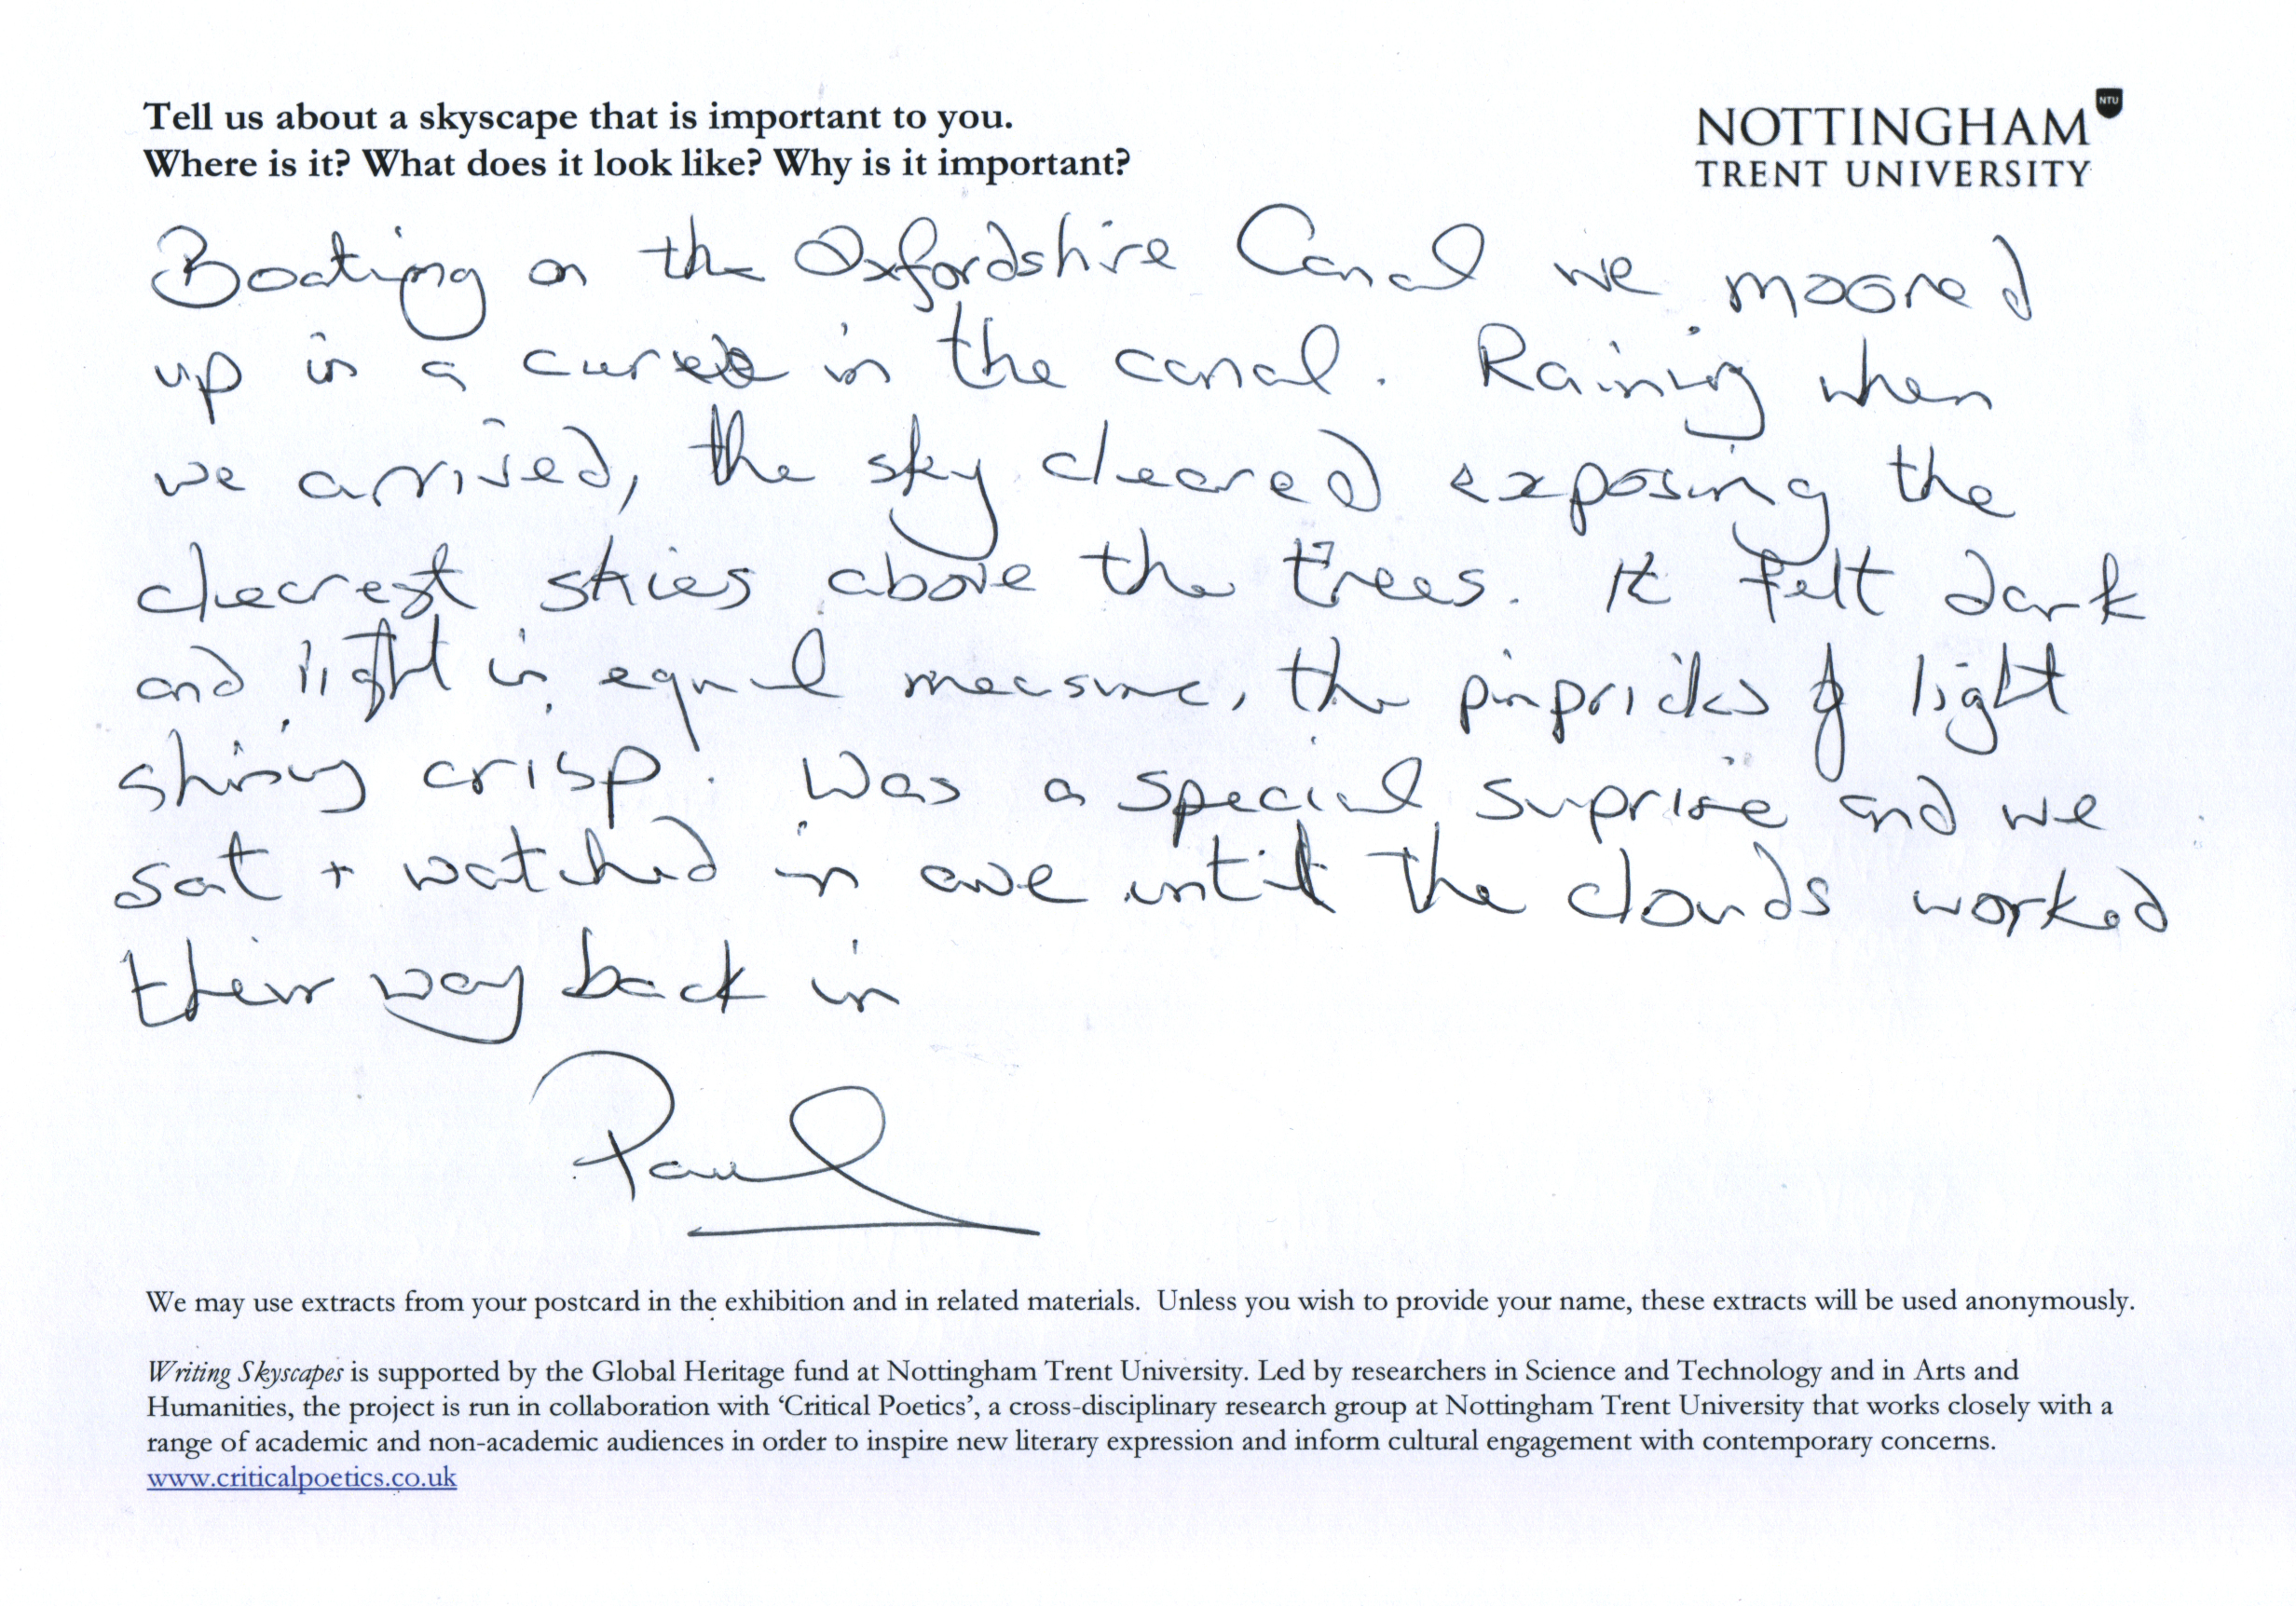 Tell us about a skyscape that is important to you.
Where is it? What does it look like? Why is it important?
NTU
NOTTINGHAM
TRENT UNIVERSITY
Boating on the Oxfordshire Canal we moored
up in a curve in the canal. Raining when
we arrived, the sky cleared exposing the
clearest skies above the trees. It felt dark
and light in equal measure, the pinpricks of light
shining crisp. Was a special suprise and we
sat + watched in awe until the clouds worked
their way back in
Paul
We may use extracts from your postcard in the exhibition and in related materials. Unless you wish to provide your name, these extracts will be used anonymously.
Writing Skyscapes is supported by the Global Heritage fund at Nottingham Trent University. Led by researchers in Science and Technology and in Arts and
Humanities, the project is run in collaboration with ‘Critical Poetics’, a cross-disciplinary research group at Nottingham Trent University that works closely with a
range of academic and non-academic audiences in order to inspire new literary expression and inform cultural engagement with contemporary concerns.
www.criticalpoetics.co.uk